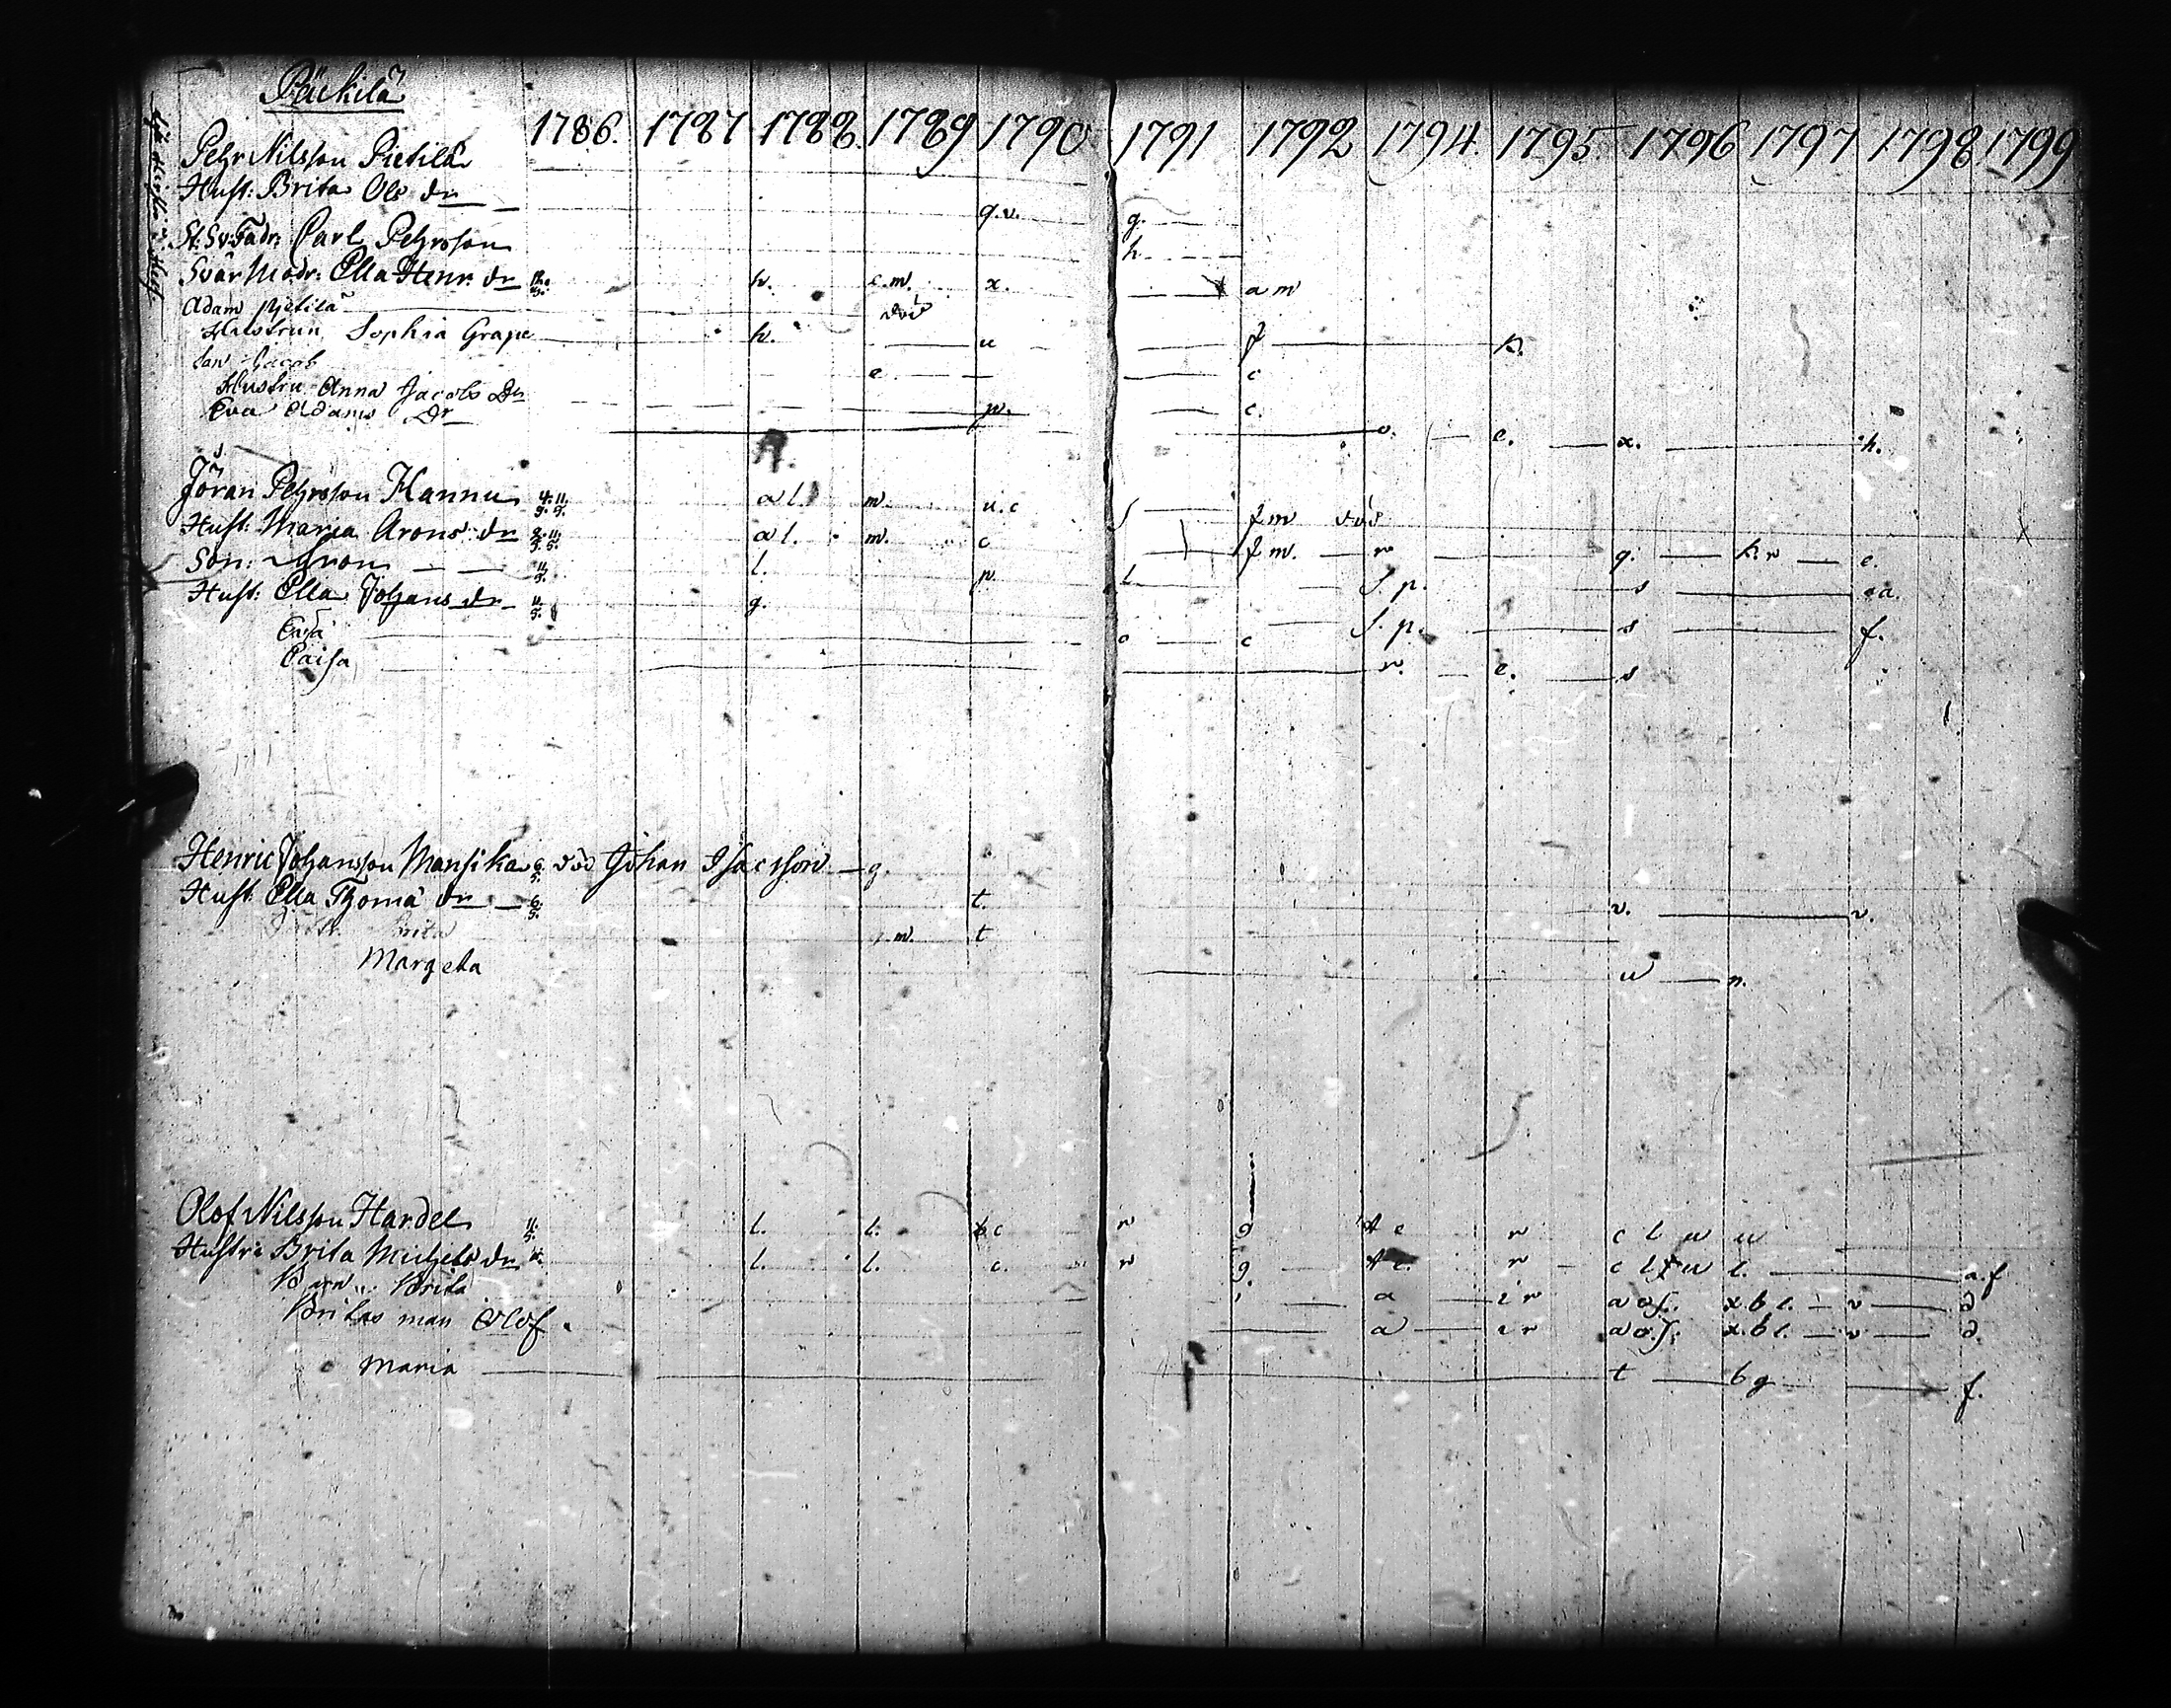 Päckilä
1786. 1787 1788. 1789 1790 1791 1792 1794. 1795. 1796 1797 1798 1799
Pehr Nilsson Pietilä
Hust: Brita Ols dr q.v. g.
St: Sv: Fadr: Carl Pehrsson h.
Svär Modr: Ella Henr. dr h. e.m. x. a m
Adam Pietilä död
Hustrun Sophia Grape h. u f k.
Jacob e. c
Hustru Anna Jacobs Dr p. c.
Eva Adams Dr v. e. x. h.
Jöran Pehrsson Hannu 4. 11. a l. m. u. c f m död
Hust: Maria Arons dr a l. m. c f m. r q. k r e.
Son: Aron l. p. l S. p. s a.
Hust: Ella Johans dr g. S. p. s f.
Eva o c
Caisa r. e. s
Henric Johansson Mansika död Johan Isacsson g.
Hust: Ella Thomæ dr t. v. v.
Brita m. t
Margeta u n.
Olof Nilsson Hardel 11. l. l. c r g t e r c l u u
Hustr: Brita Michels dr l. l. c. r g. t e. r c l t u l. a. f
Barn: Brita a i r a o f. x b l. v d
Britas man Olof. a i r a o f. x. b l. v d.
Maria t b g f.